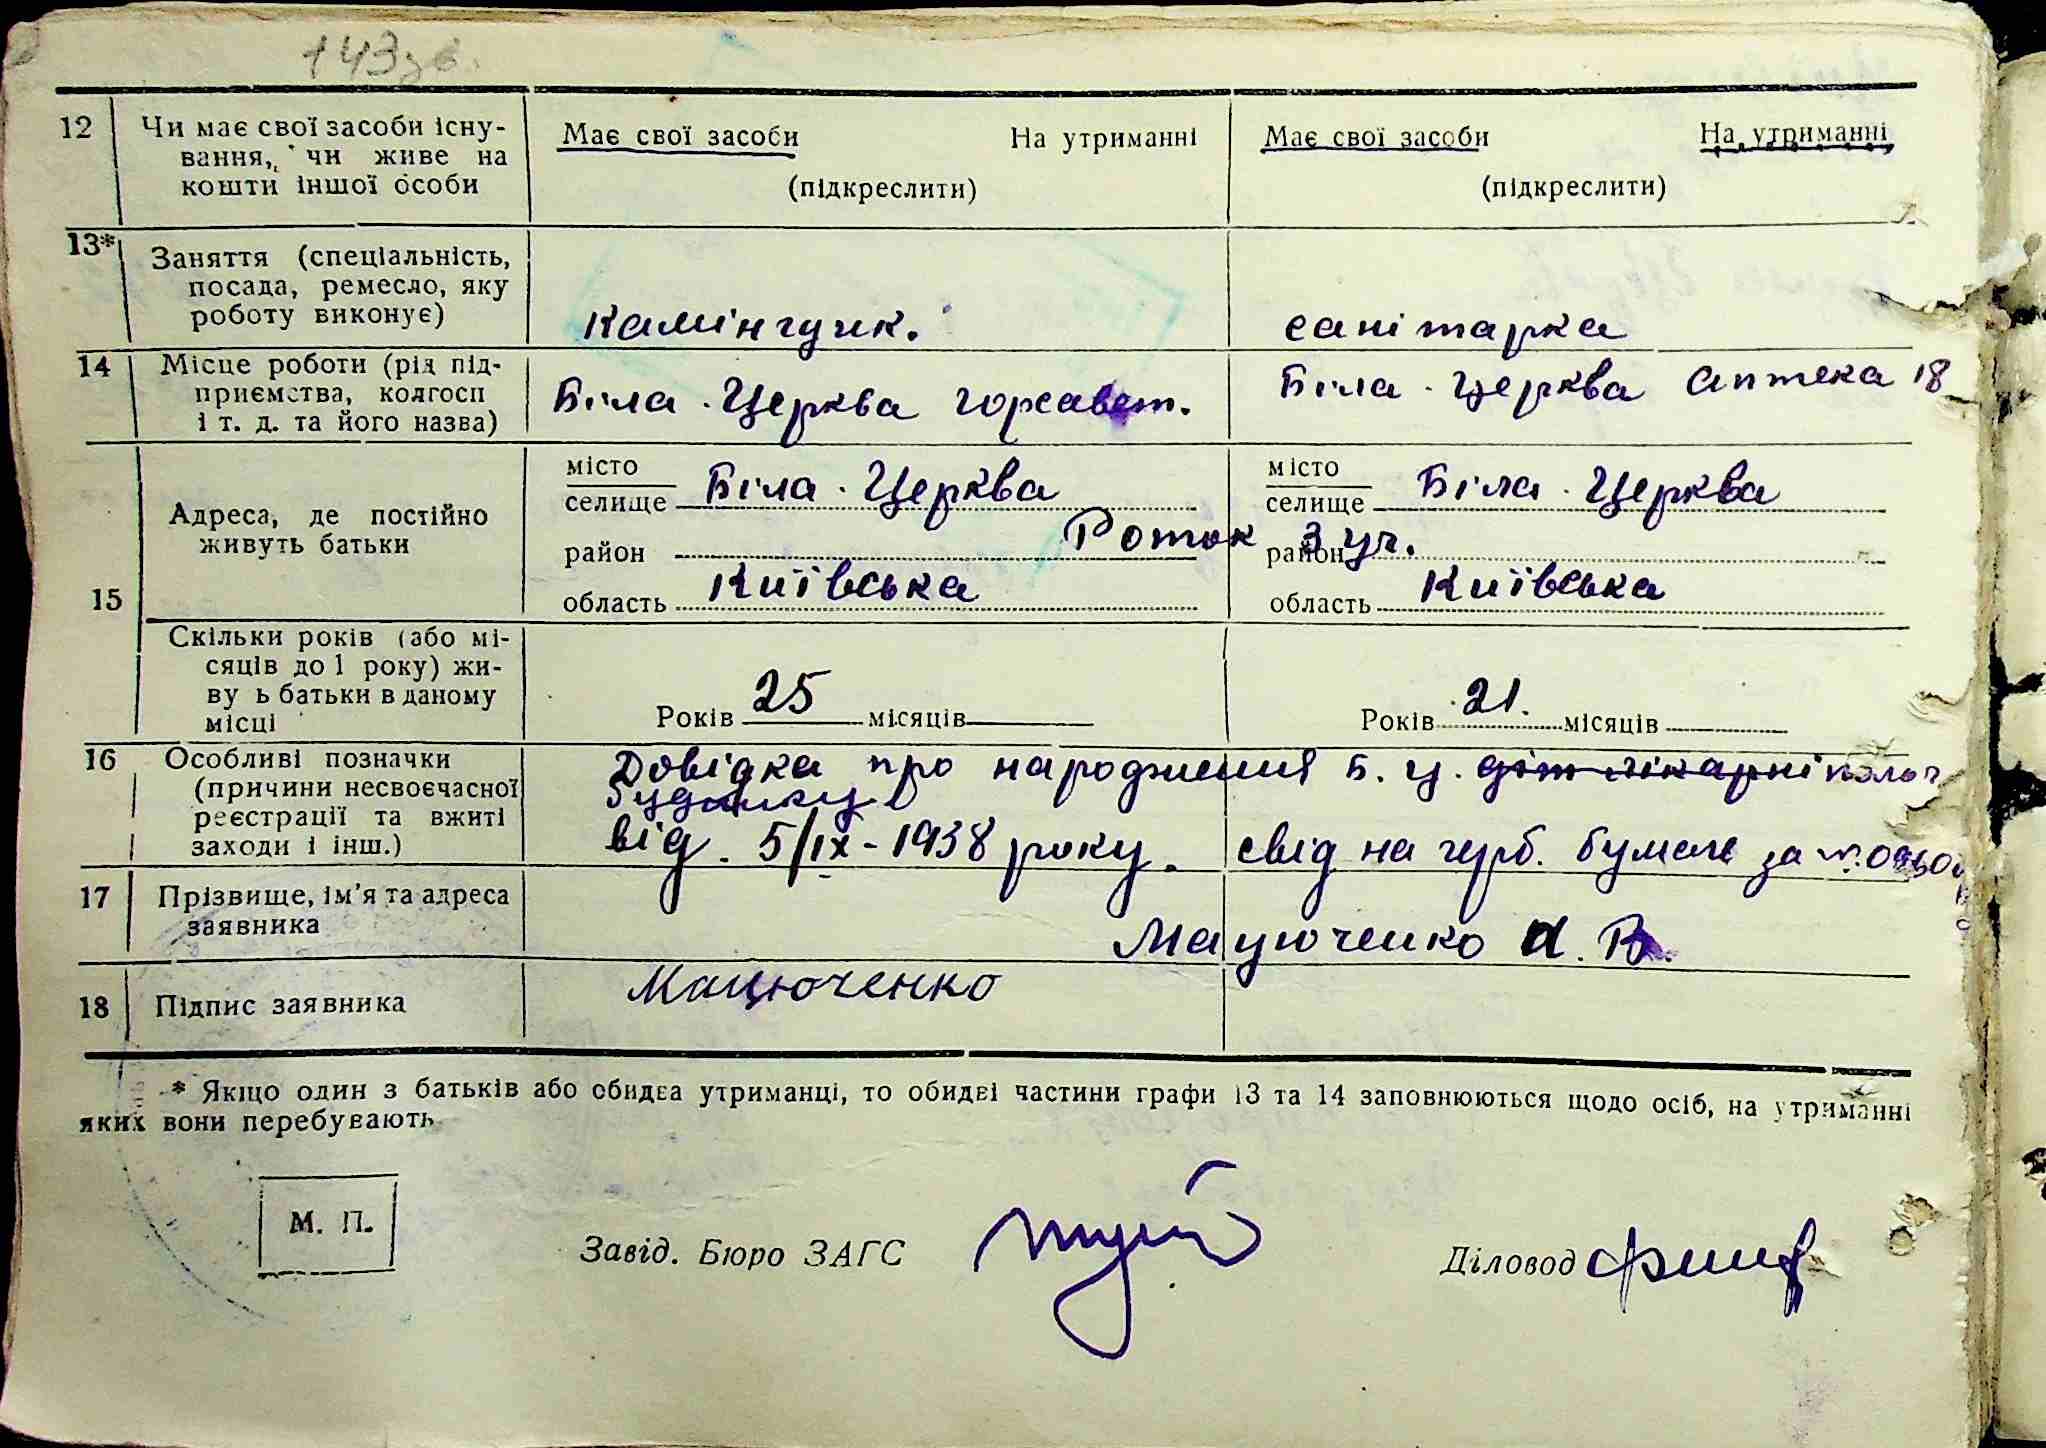 143 зв.
12 Чи має свої засоби існу- Має свої засоби На утриманні Має свої засоби На утриманні
вання, чи живе на
кошти іншої особи (підкреслити) (підкреслити)
13* Заняття (спеціальність,
посада, ремесло, яку
роботу виконує) камінщик. санітарка
14 Місце роботи (рід під-
приємства, колгосп Біла-Церква горсавет. Біла-Церква Аптека 18
і т. д. та його назва)
15 Адреса, де постійно
живуть батьки
місто Біла-Церква місто Біла-Церква
селище селище
район Роток район 3 уч.
область Київська область Київська
Скільки років (або мі-
сяців до 1 року) жи-
ву ь батьки в даному
місці Років 25 місяців Років 21. місяців
16 Особливі позначки Довідка про народження Б. Ц. діт лікарні
(причини несвоєчасної будинку
реєстрації та вжиті від. 5/IX-1938 року. свід на герб. бумаге за
заходи і інш.)
17 Прізвище, ім'я та адреса
заявника Мацюченко В.
18 Підпис заявника Мацюченко
* Якщо один з батьків або обидва утриманці, то обидві частини графи 13 та 14 заповнюються щодо осіб, на утриманні
яких вони перебувають
М. П.
Завід. Бюро ЗАГС Діловод